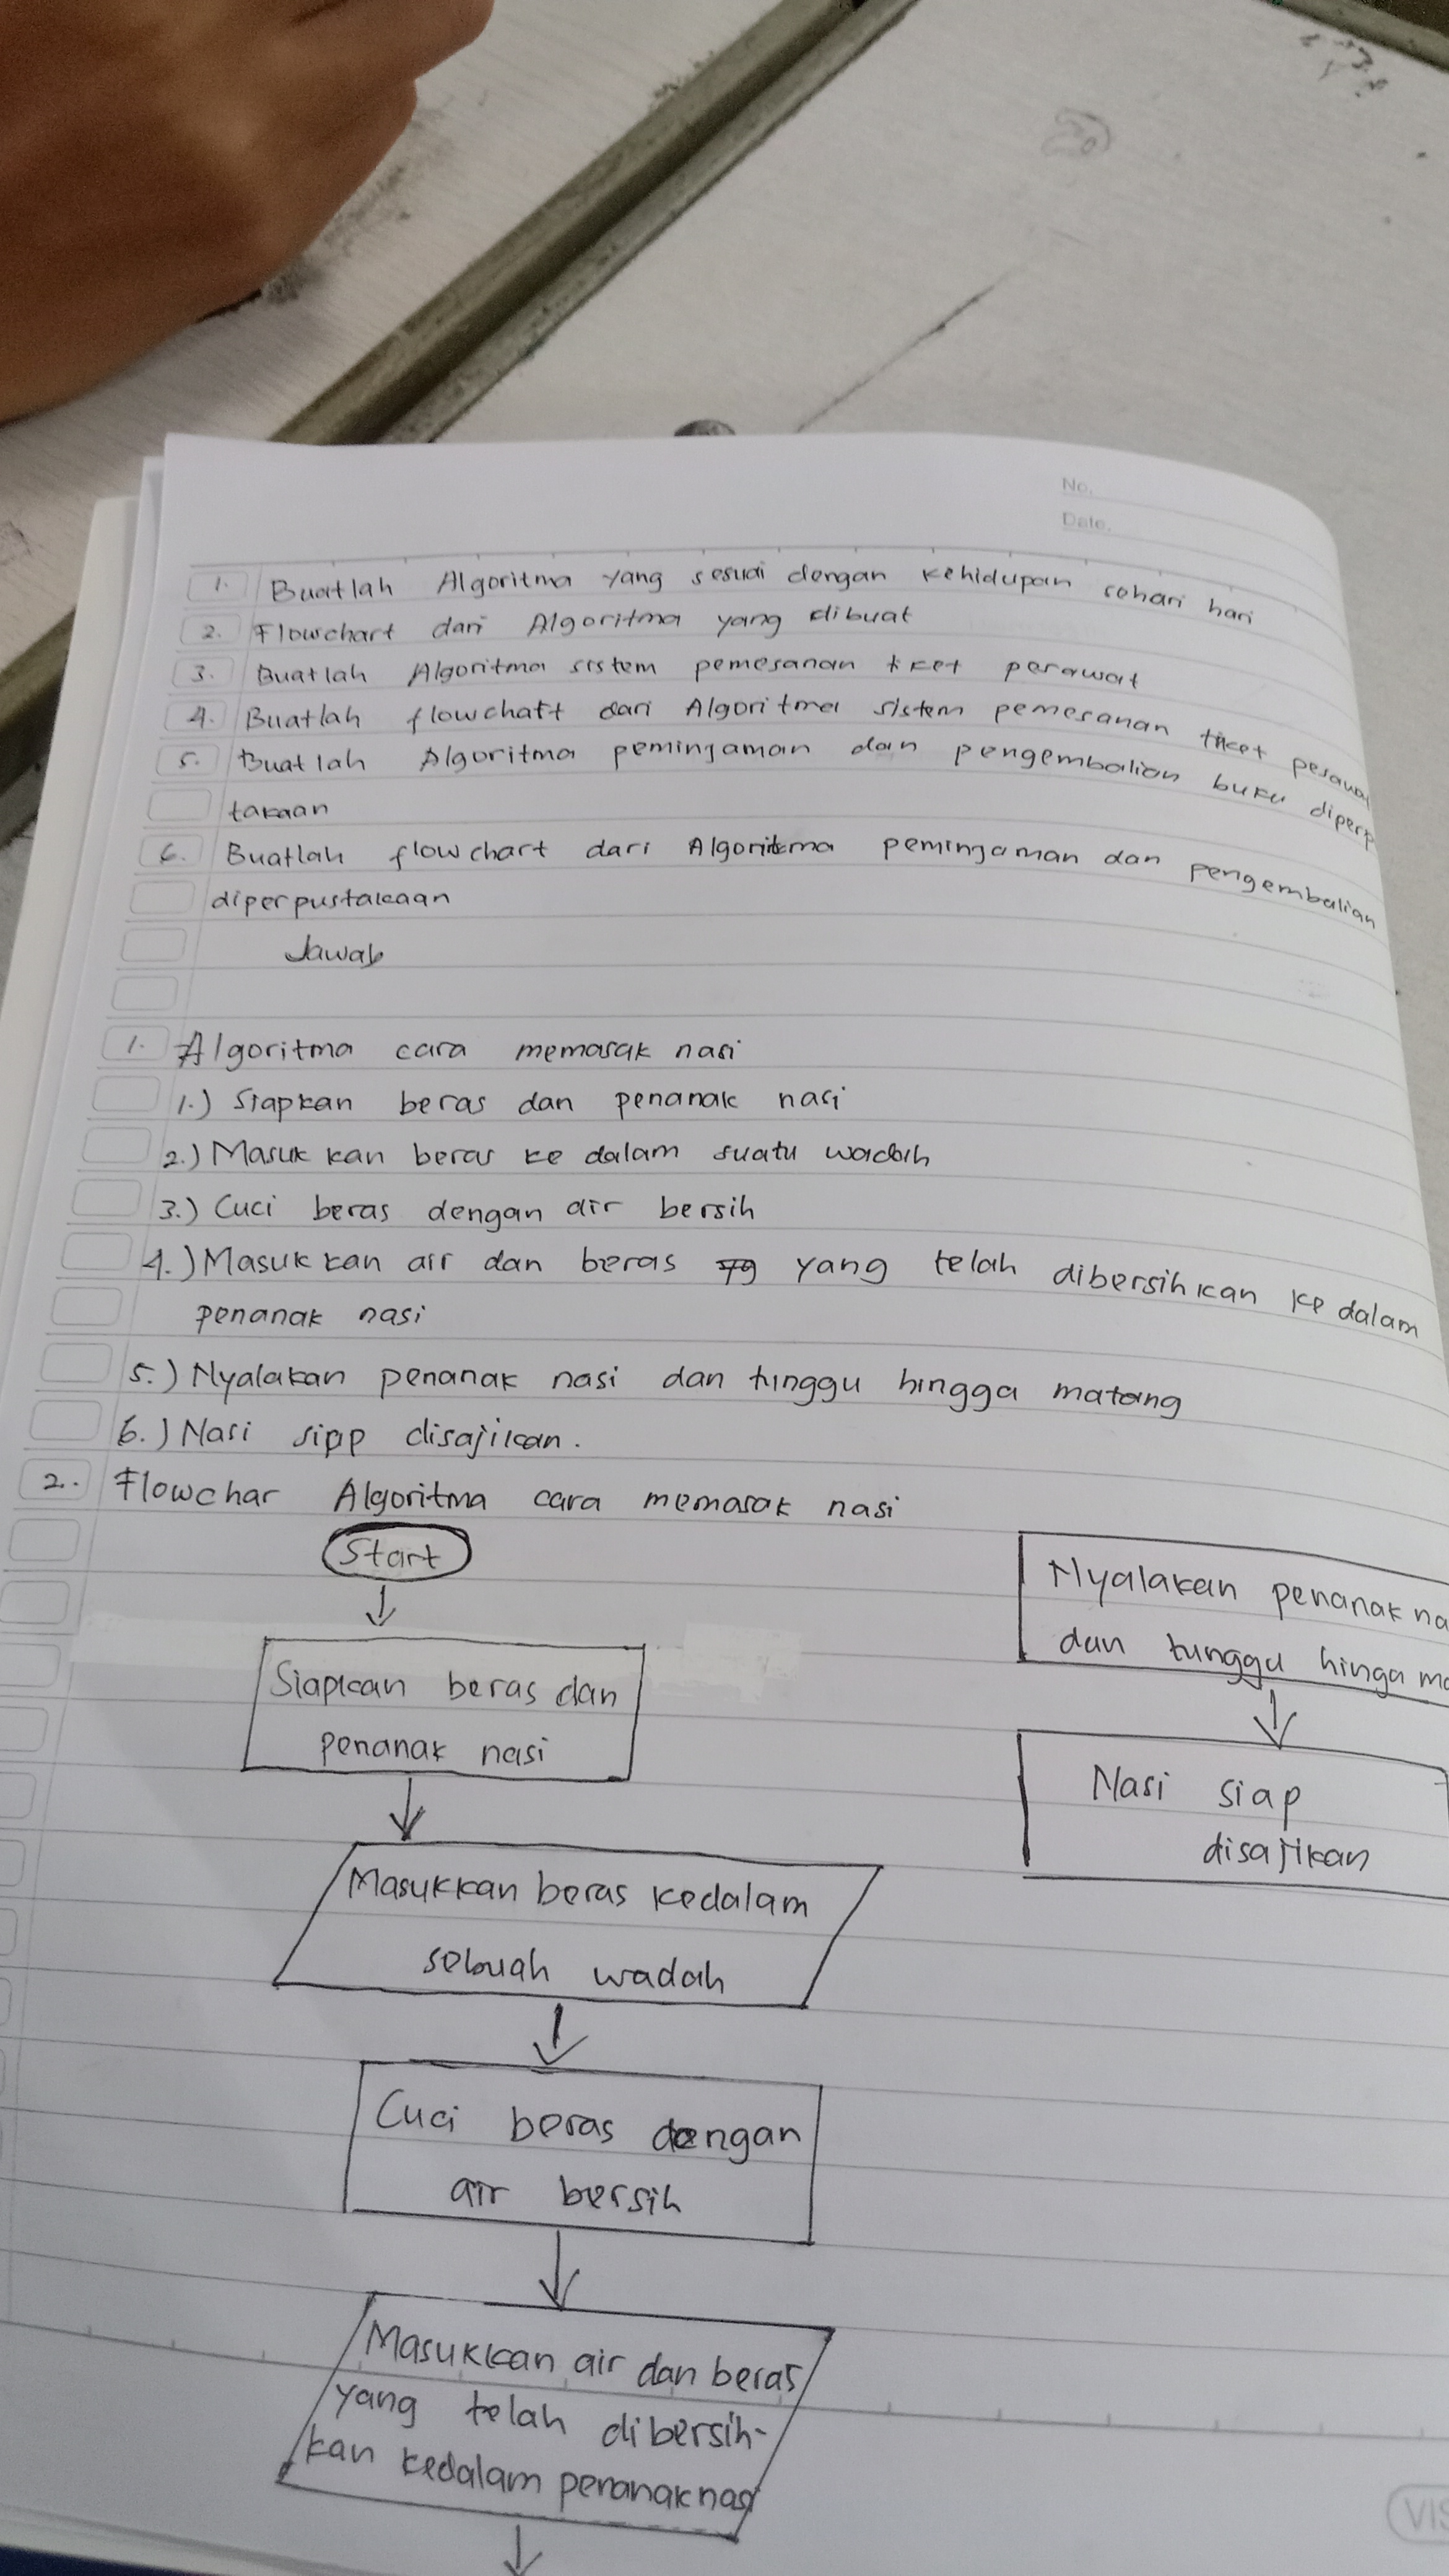 No.
Date.
1. Buatlah Algoritma yang sesuai dengan kehidupan sehari hari
2. Flowchart dari Algoritma yang dibuat
3. Buatlah Algoritma sistem pemesanan tket perawat
4. Buatlah flowchatt dari Algoritma sistem pemesanan tket pesawa
5. Buatlah Algoritma peminjaman dan pengembalian buku diperp
takaan
6. Buatlah flowchart dari Algoritma peminjaman dan pengembalian
diperpustakaan
Jawab
1. Algoritma cara memasak nasi
1.) Siapkan beras dan penanak nasi
2.) Masukkan beras ke dalam suatu wadah
3.) Cuci beras dengan air bersih
4.) Masukkan air dan beras yang telah dibersihkan ke dalam
penanak nasi
5.) Nyalakan penanak nasi dan tunggu hingga matang
6.) Nasi siap disajikan.
2. Flowchar Algoritma cara memasak nasi
Start
Siapkan beras dan
penanak nasi
Masukkan beras kedalam
sebuah wadah
Cuci beras dengan
air bersih
Masukkan air dan beras
yang telah dibersih-
kan kedalam penanak nasi
Nyalakan penanak na
dan tunggu hinga ma
Nasi siap
disajikan
VIS